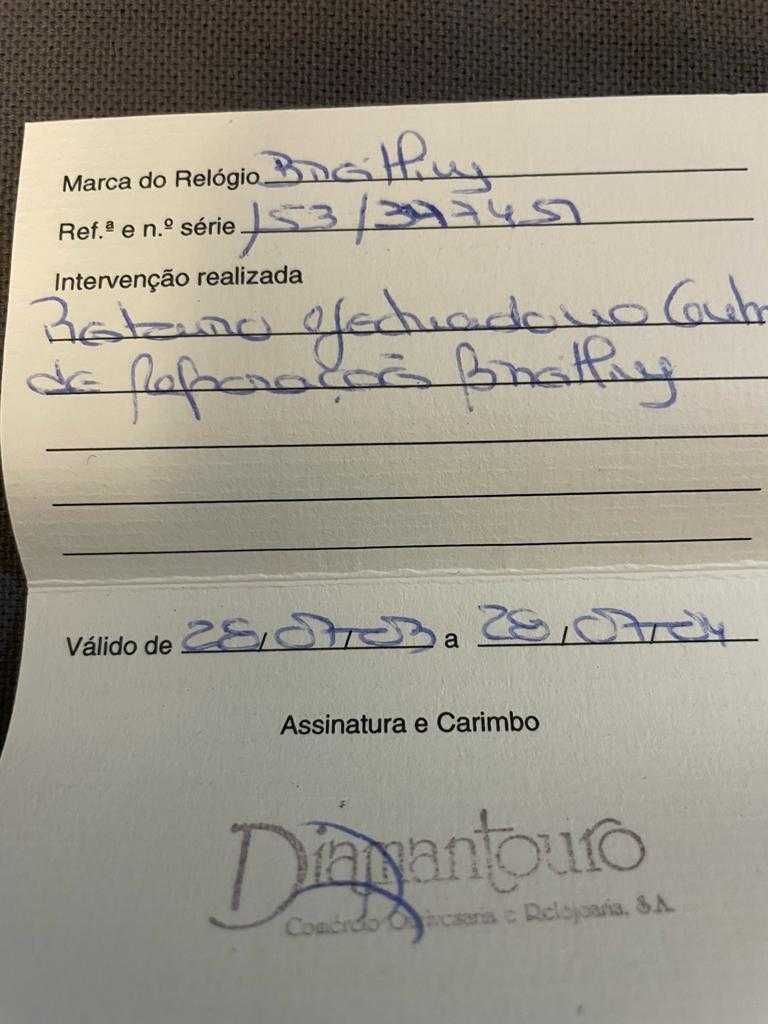 Marca do Relógio Breitling
Ref.ª e n.º série 153 /
Intervenção realizada
efectuado no
de Reparação Breitling
Válido de 28/07/03 a 28/07/04
Assinatura e Carimbo
Diamantouro
Comércio Ourivesaria e Relojoaria, S.A.